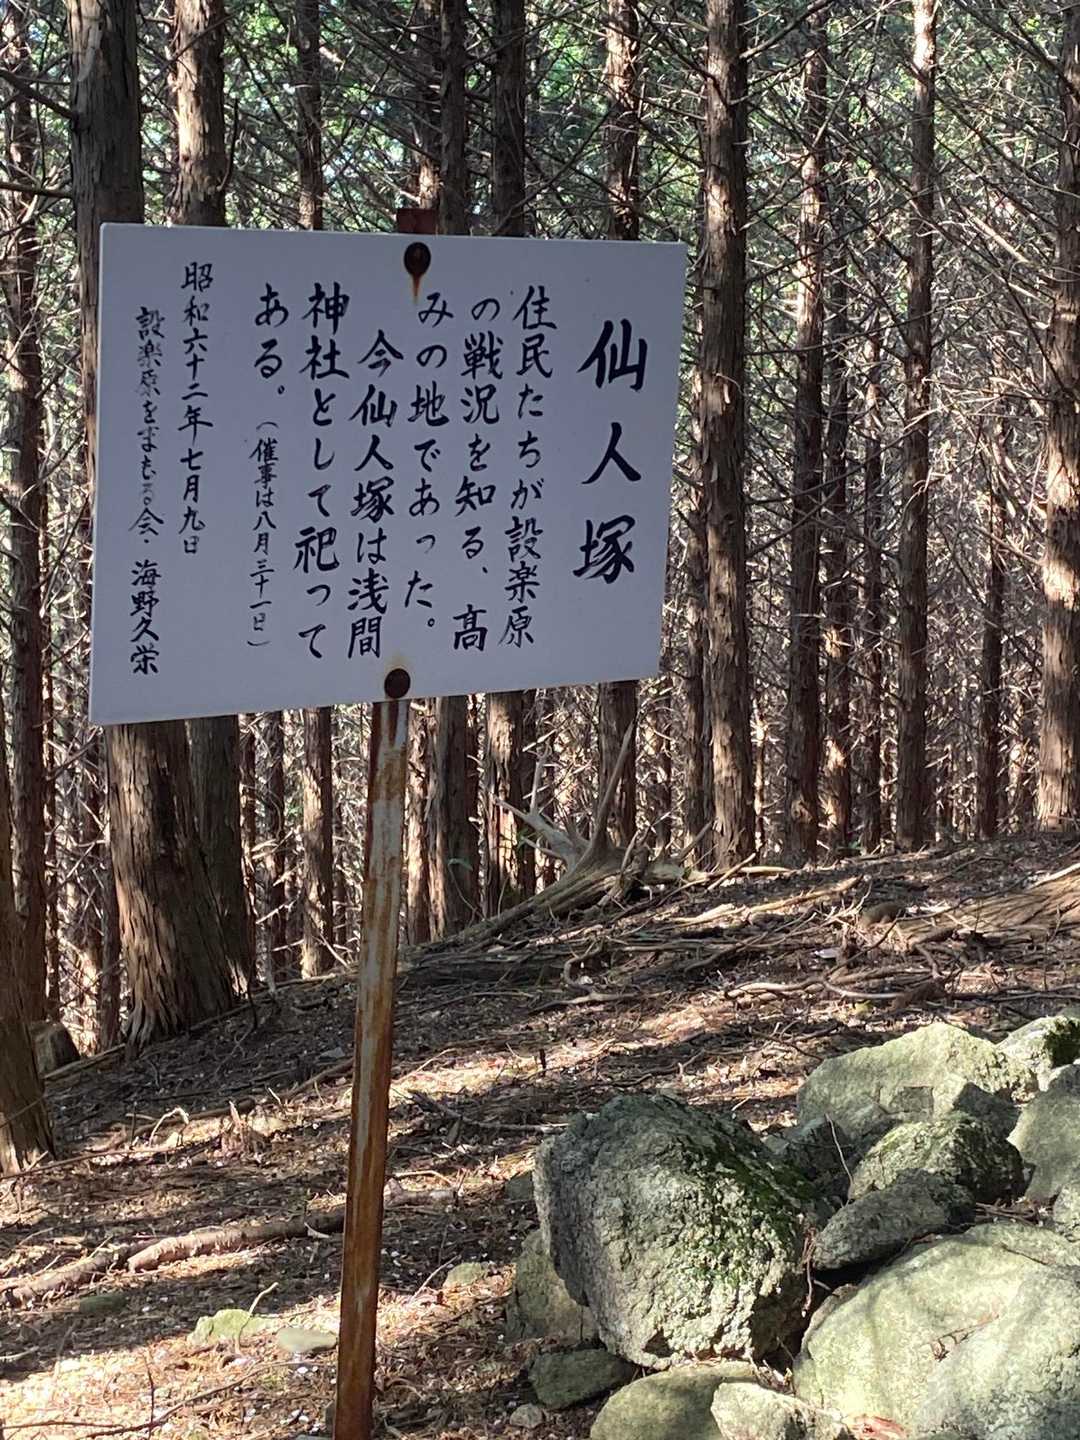 仙人塚
住民たちが設楽原
の戦況を知る、高
みの地であった。
今仙人塚は浅間
神社として祀って
ある。(催事は八月三十一日)
昭和六十二年七月九日
設楽原をまもる会・海野久栄